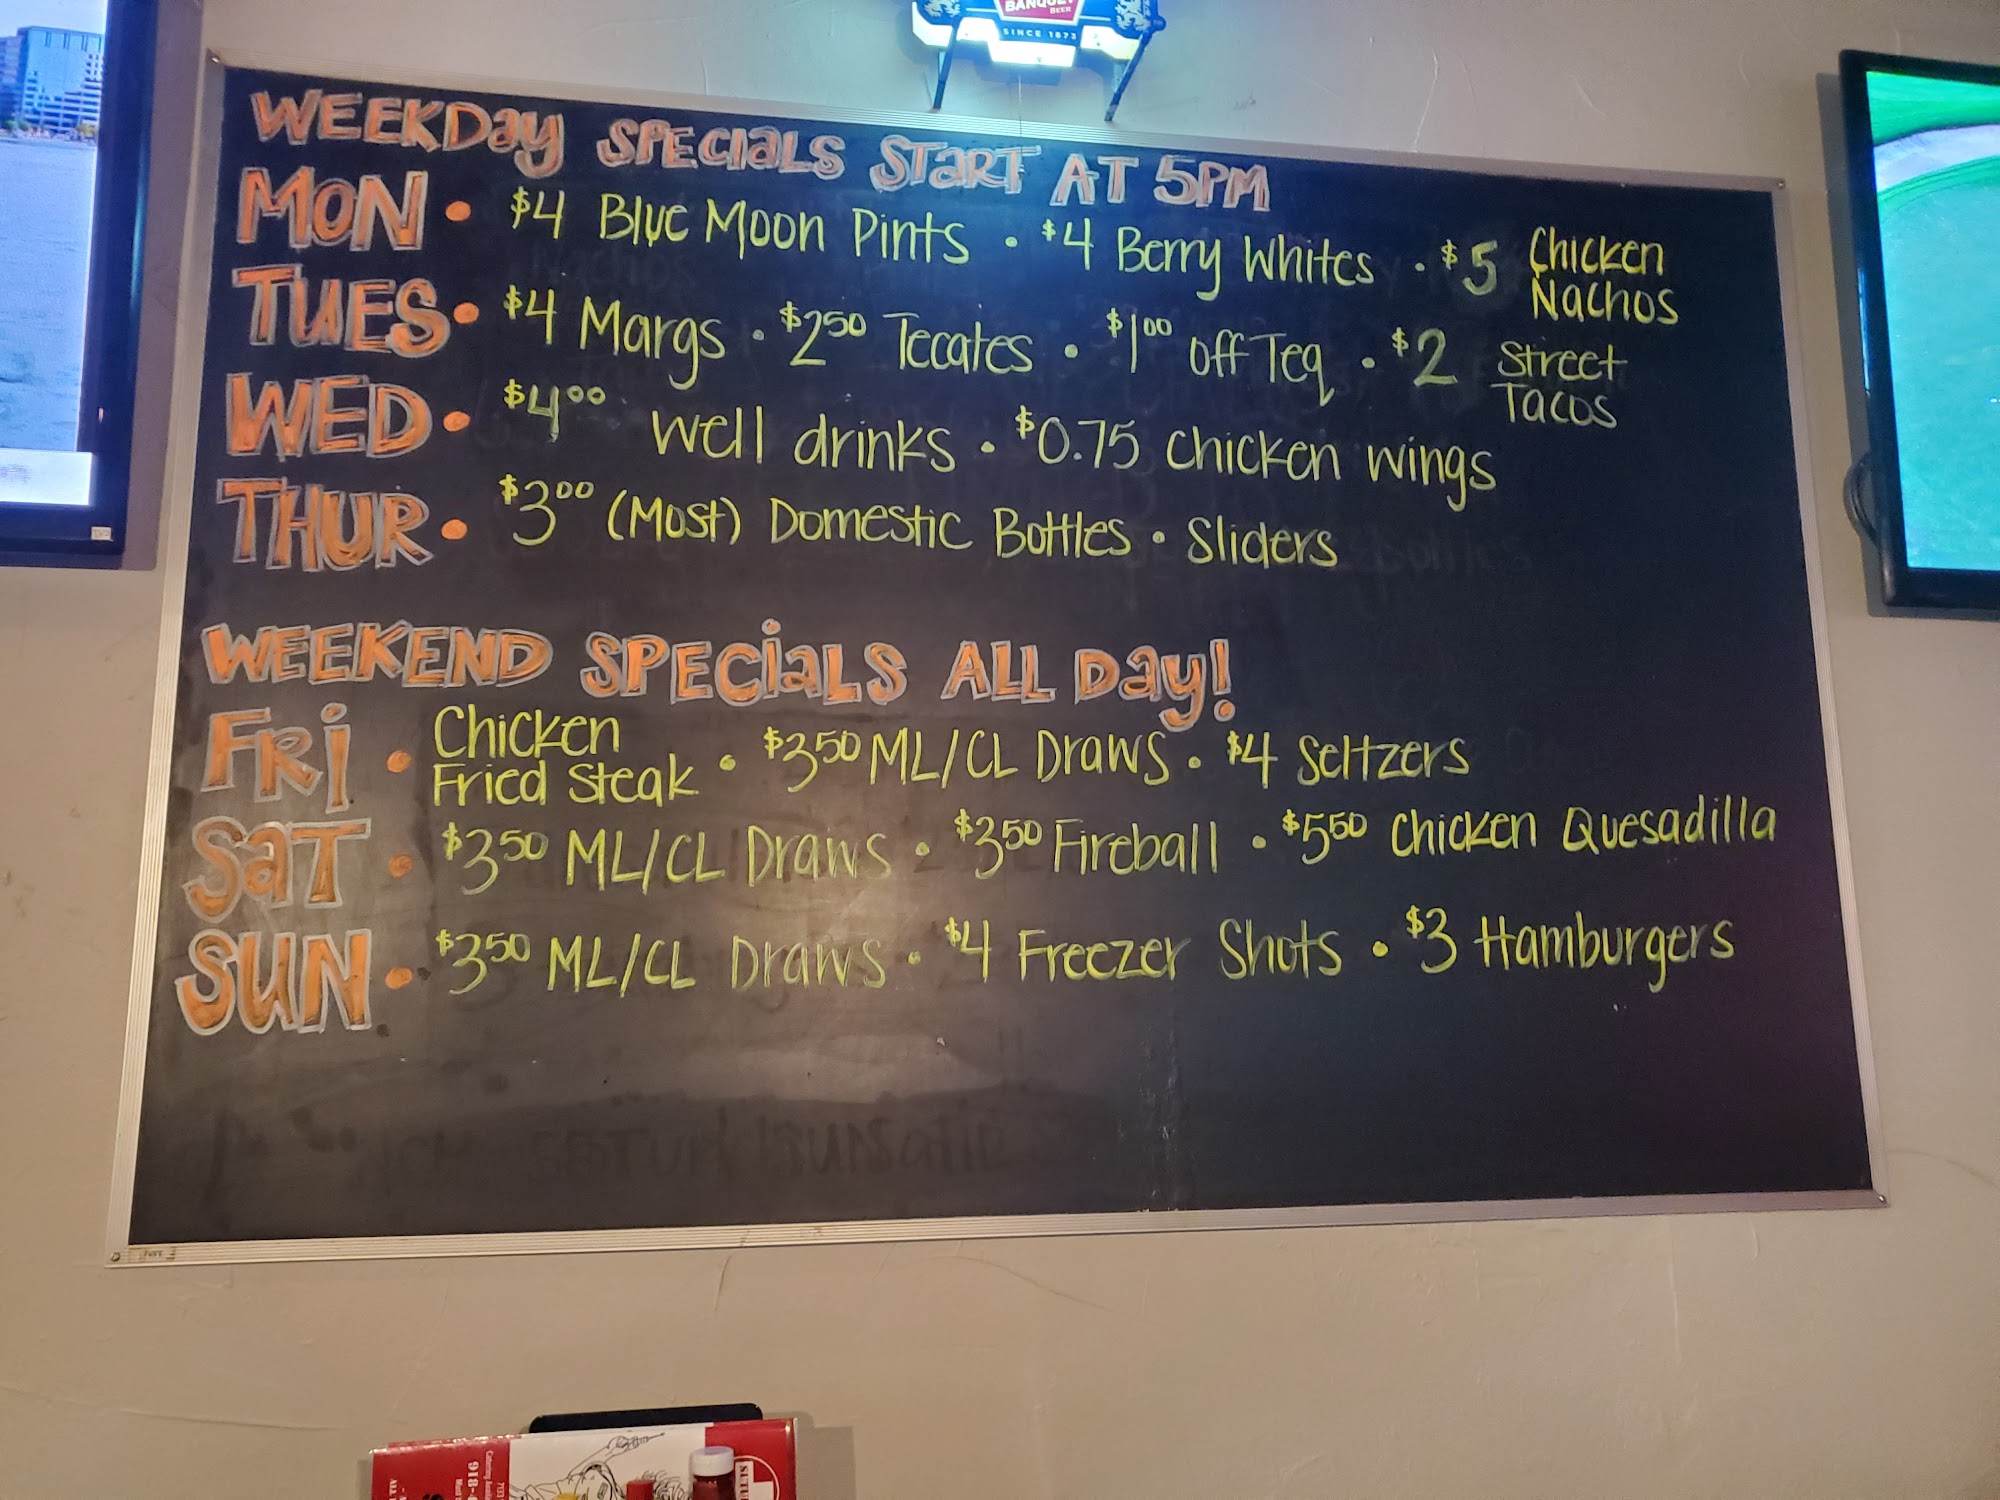 BANQUET
BEER
SINCE 1873
WEEKDay SPECiaLS START AT 5PM
MON • $4 Blue Moon Pints • $4 Berry Whites • $5 Chicken Nachos
TUES • $4 Margs • $250 Tecates • $100 off Teq • $2 Street Tacos
WED • $400 well drinks • $0.75 chicken wings
THUR • $300 (Most) Domestic Bottles • Sliders
WEEKEND SPECiaLS ALL Day!
FRi • Chicken Fried Steak • $350 ML/CL Draws • $4 Seltzers
SaT • $350 ML/CL Draws • $350 Fireball • $550 Chicken Quesadilla
SUN • $350 ML/CL Draws • $4 Freezer Shots • $3 Hamburgers